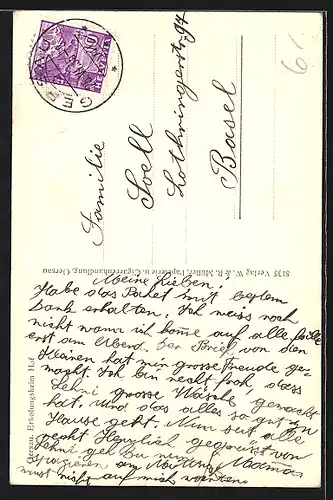 GERSAU
HELVETIA
10
61
Familie
Soell
Lothringerstr. 94
Basel
8135 Verlag W. & R. Müller, Papeterie u. Cigarrenhandlung, Gersau
Gersau. Erholungsheim Hof
Meine Lieben!
Habe das Packet mit bestem
Dank erhalten. Ich weiss noch
nicht wann ich komme auf alle Fälle
erst am Abend. Der Brief von den
Kleinen hat mir grosse Freude ge-
macht. Ich bin recht froh, dass
grosse Wäsche gemacht
hat. Und das alles so gut zu
Hause geht. Nun seit alle
recht Herzlich gegrüsst von
Mama
spazieren am Mittag
nicht auf mich warten